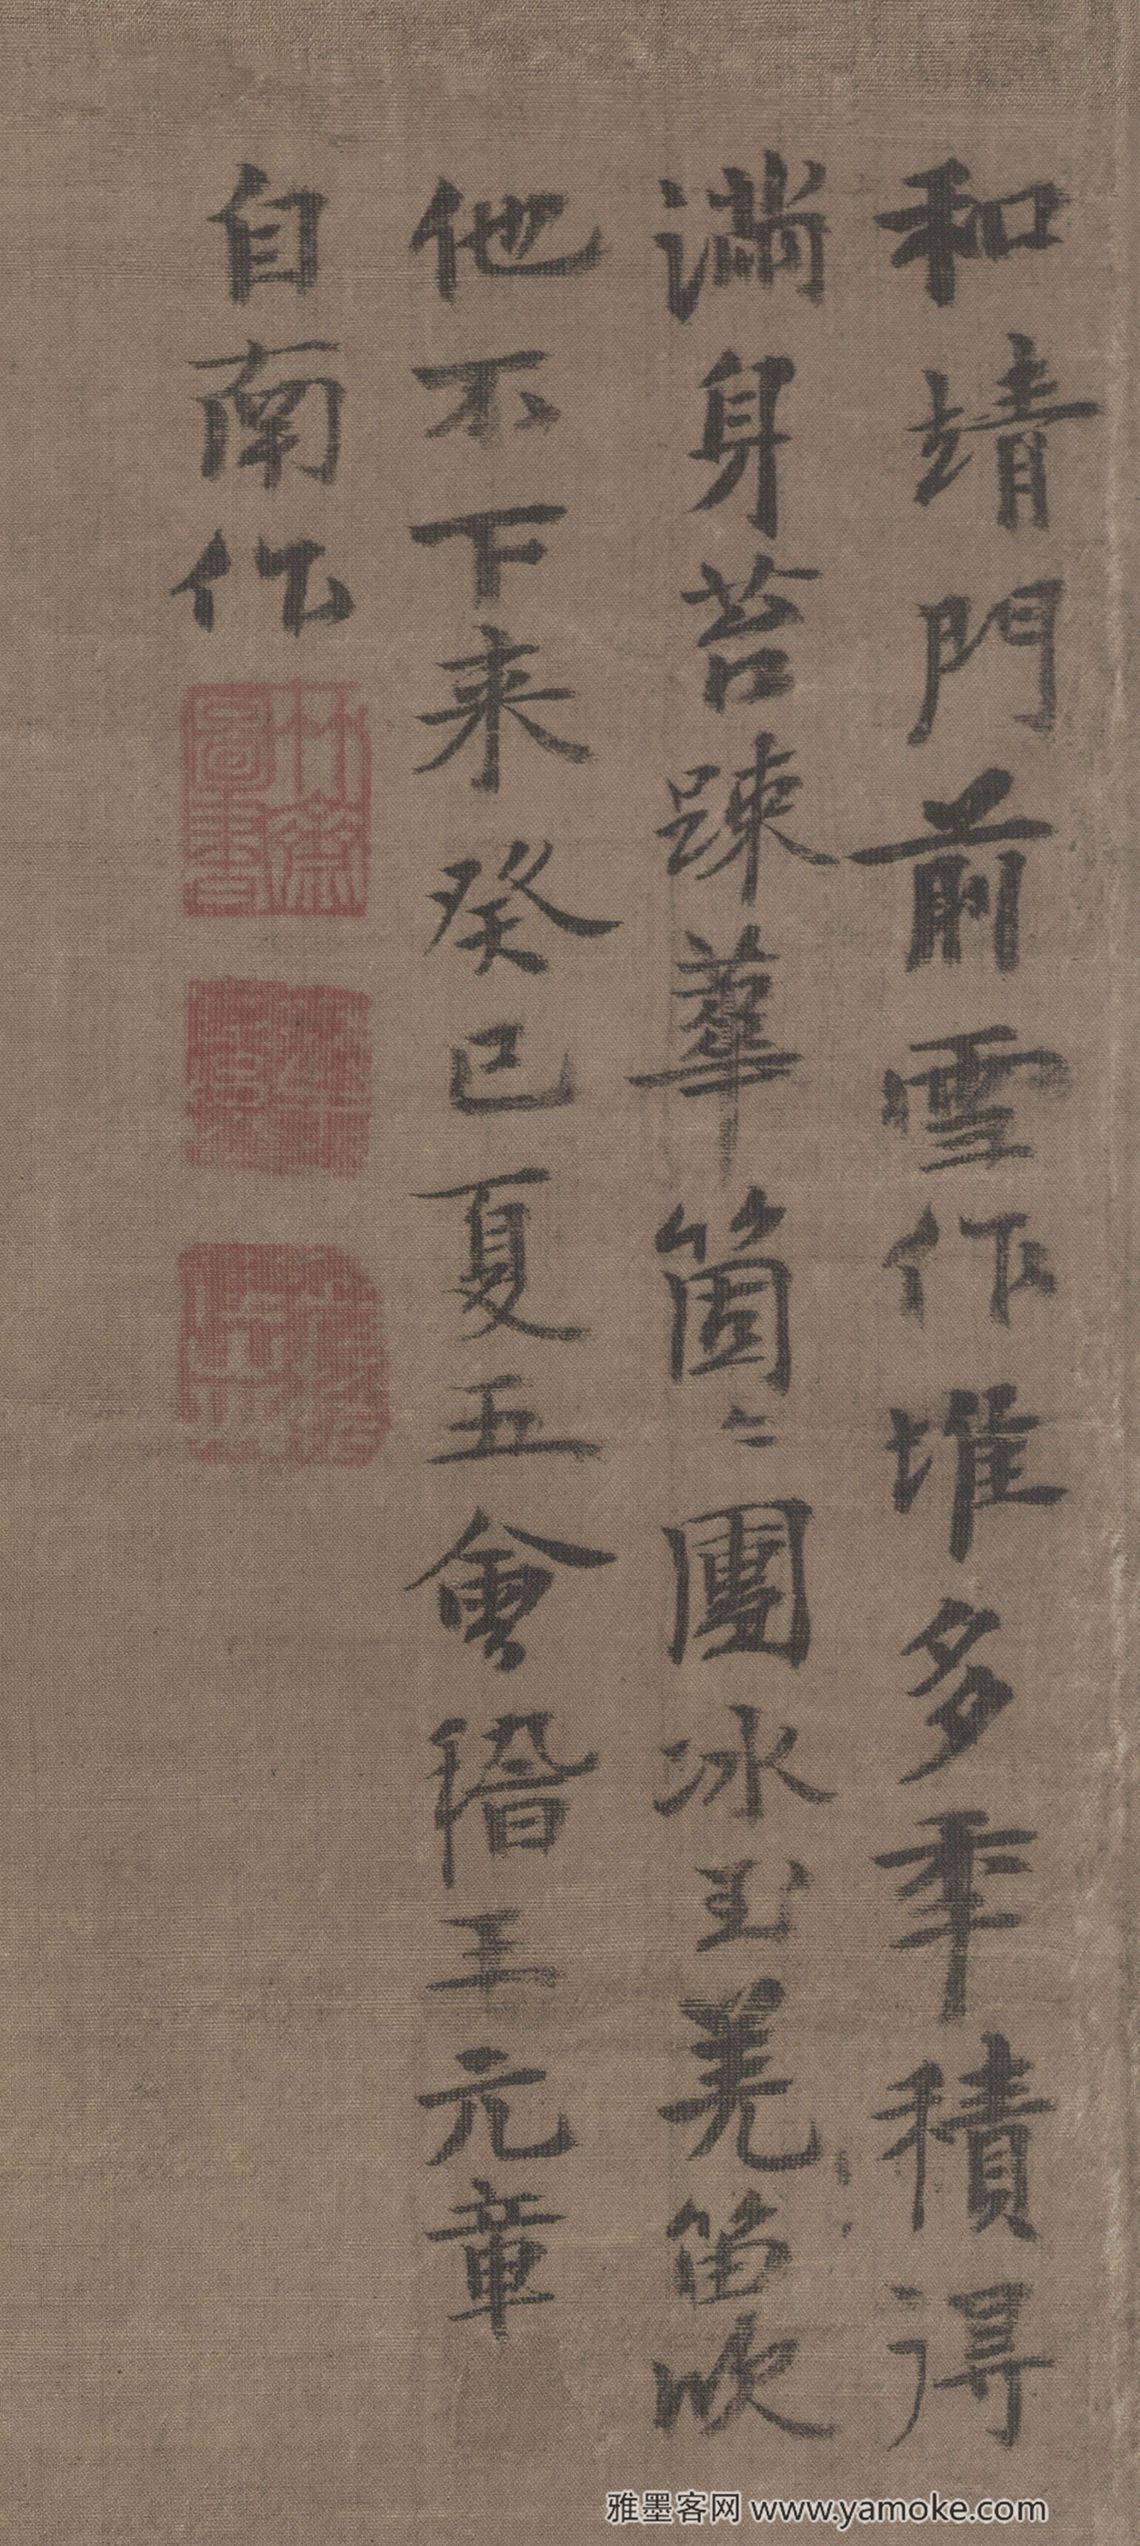 和靖門前雪作堆多年積得
滿身苔疎華箇〻團冰玉羌笛吹
他不下来癸巳夏五會稽王元章
自南作
竹齋圖書
雅墨客网 www.yamoke.com